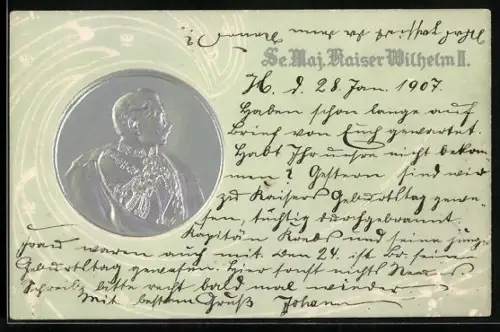 Se. Maj. Kaiser Wilhelm II.
H. d. 28 Jan. 1907.
Haben schon lange auf
Brief von Euch gewartet.
Habt Ihr unsre nicht bekom
men? Gestern sind wir
zu Kaisers Geburtstag gewe-
sen, tüchtig durchgebrannt.
Kapitän Krebs und seine junge
Frau waren auch mit. den 24. ist Br. seine
Geburtstag gewesen. Hier sonst nichts Neues
Schreibt bitte recht bald mal wieder
Mit bestem Gruß Johann